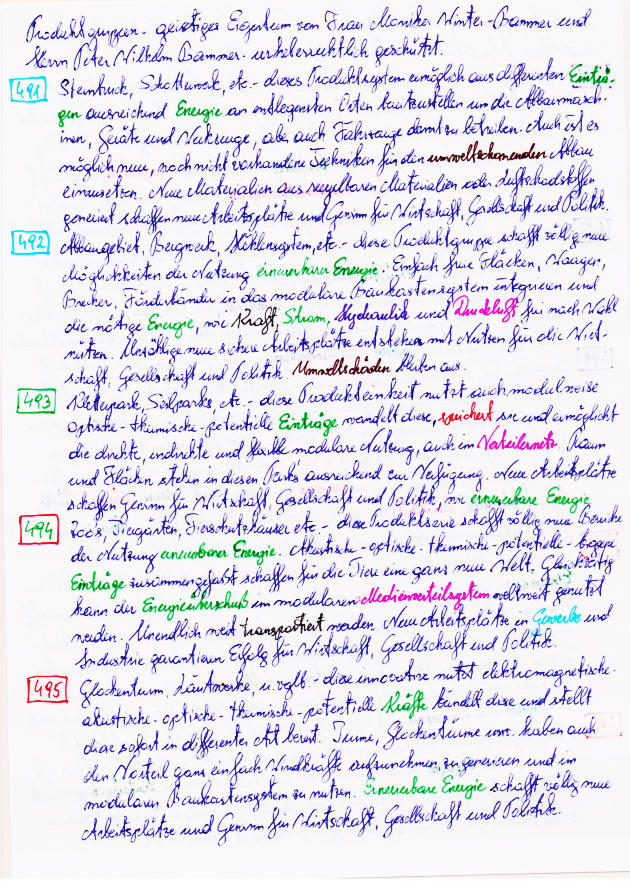 Produktgruppen - geistiges Eigentum von Frau Monika Winter-Bammer und
Herrn Peter Wilhelm Bammer - urheberrechtlich geschützt.
491 Steinbruch, Schotterwerk, etc. - dieses Produktsystem ermöglich aus differenten Einträ-
gen ausreichend Energie an entlegensten Orten bereitzustellen um die Abbaumasch-
inen, Geräte und Werkzeuge, aber auch Fahrzeuge damit zu betreiben. Auch ist es
möglich neue, noch nicht vorhandene Techniken für den umweltschonenden Abbau
einzusetzen. Neue Materialien aus recycelbaren Materialien oder Luftschadstoffen
generiert schaffen neue Arbeitsplätze und Gewinn für Wirtschaft, Gesellschaft und Politik.
492 Abbaugebiet, Bergwerk, Mühlensystem, etc. - diese Produktgruppe schafft völlig neue
Möglichkeiten der Nutzung erneuerbarer Energie. Einfach freie Flächen,
Brecher, Förderbänder in das modulare Baukastensystem integrieren und
die nötige Energie, wie Kraft, Strom, Hydraulik und Druckluft frei nach Wahl
nützen. Unzählige neue sichere Arbeitsplätze entstehen mit Nutzen für die Wirt-
schaft, Gesellschaft und Politik. Umweltschäden bleiben aus.
493 Kletterpark, Seilparks, etc. - diese Produkteinheit nützt auch modulweise
optische - thermische - potentielle Einträge wandelt diese, speichert sie und ermöglicht
die direkte, indirekte und flexible modulare Nutzung, auch im Verteilernetz. Raum
und Flächen stehen in diesen Parks ausreichend zur Verfügung. Neue Arbeitsplätze
schaffen Gewinn für Wirtschaft, Gesellschaft und Politik, wie erneuerbare Energie
494 Zoos, Tiergärten, Tierschutzhäuser etc. - diese Produktserie schafft völlig neue Bereiche
der Nutzung erneuerbarer Energie. Akustische - optische - thermische - potentielle - biogene
Einträge zusammengefasst schaffen für die Tiere eine ganz neue Welt. Gleichzeitig
kann der Energieüberschuß im modularen Medienverteilsystem weltweit genutzt
werden. Unendlich weit transportiert werden. Neue Arbeitsplätze in Gewerbe und
Industrie garantieren Erfolg für Wirtschaft, Gesellschaft und Politik.
495 Glockenturm, Läutwerke, u. vglb. - diese innovative nützt elektromagnetische -
akustische - optische - thermische - potentielle Kräfte bündelt diese und stellt
diese sofort in differenter Art bereit. Türme, Glockentürme usw. haben auch
den Vorteil ganz einfach Windkräfte aufzunehmen, zu generieren und im
modularen Baukastensystem zu nützen. Erneuerbare Energie schafft völlig neue
Arbeitsplätze und Gewinn für Wirtschaft, Gesellschaft und Politik.